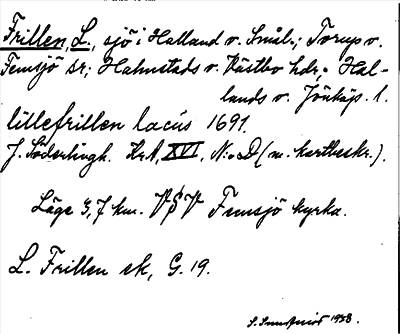 Frillen, L., sjö i Halland o. Smål.; Torup o.
Femsjö sr; Halmstads o. Västbo hdr; Hal-
lands o. Jönköp. l.
lillefrillen lacus 1691.
J. Söderlingh. KrA, XVI, N:o D (m. kartbeskr.).
Läge 3,7 km. VSV Femsjö kyrka.
L. Frillen ek, G. 19.
1928.